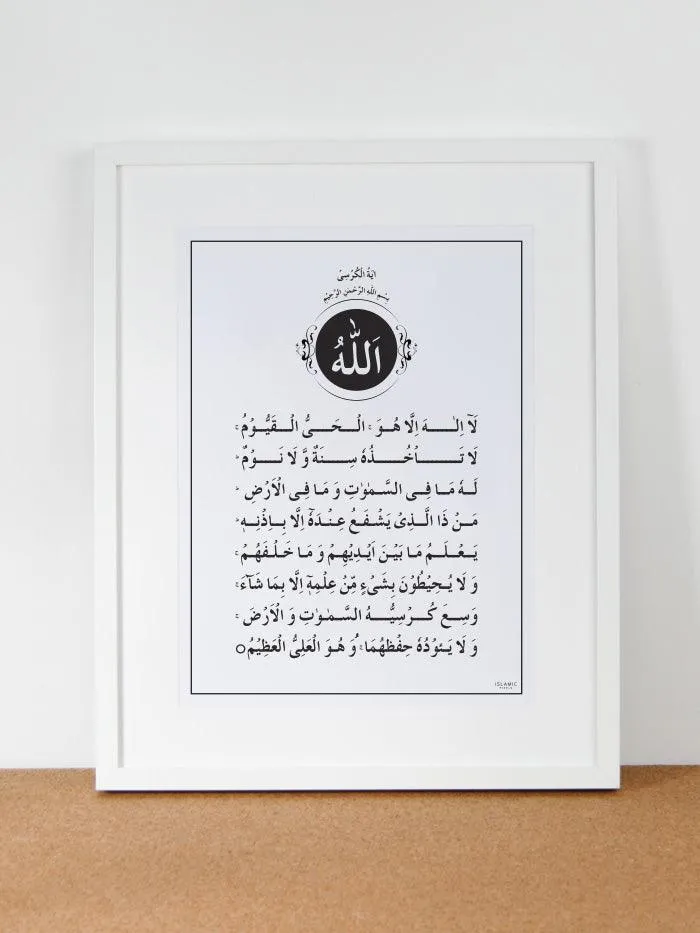 اٰيَةُ الْكُرْسِیْ
بِسْمِ اللهِ الرَّحْمٰنِ الرَّحِيْمِ
اَللّٰهُ
لَاۤ اِلٰهَ اِلَّا هُوَ ۚ اَلْحَیُّ الْقَيُّوْمُ ۚ
لَا تَاْخُذُهٗ سِنَةٌ وَّ لَا نَوْمٌ ؕ
لَهٗ مَا فِی السَّمٰوٰتِ وَ مَا فِی الْاَرْضِ ؕ
مَنْ ذَا الَّذِیْ يَشْفَعُ عِنْدَهٗۤ اِلَّا بِاِذْنِهٖ ؕ
يَعْلَمُ مَا بَيْنَ اَيْدِيْهِمْ وَ مَا خَلْفَهُمْ ۚ
وَ لَا يُحِيْطُوْنَ بِشَیْءٍ مِّنْ عِلْمِهٖۤ اِلَّا بِمَا شَآءَ ۚ
وَسِعَ كُرْسِيُّهُ السَّمٰوٰتِ وَ الْاَرْضَ ۚ
وَ لَا يَـُٔوْدُهٗ حِفْظُهُمَا ۚ وَ هُوَ الْعَلِیُّ الْعَظِيْمُ ○
ISLAMIC